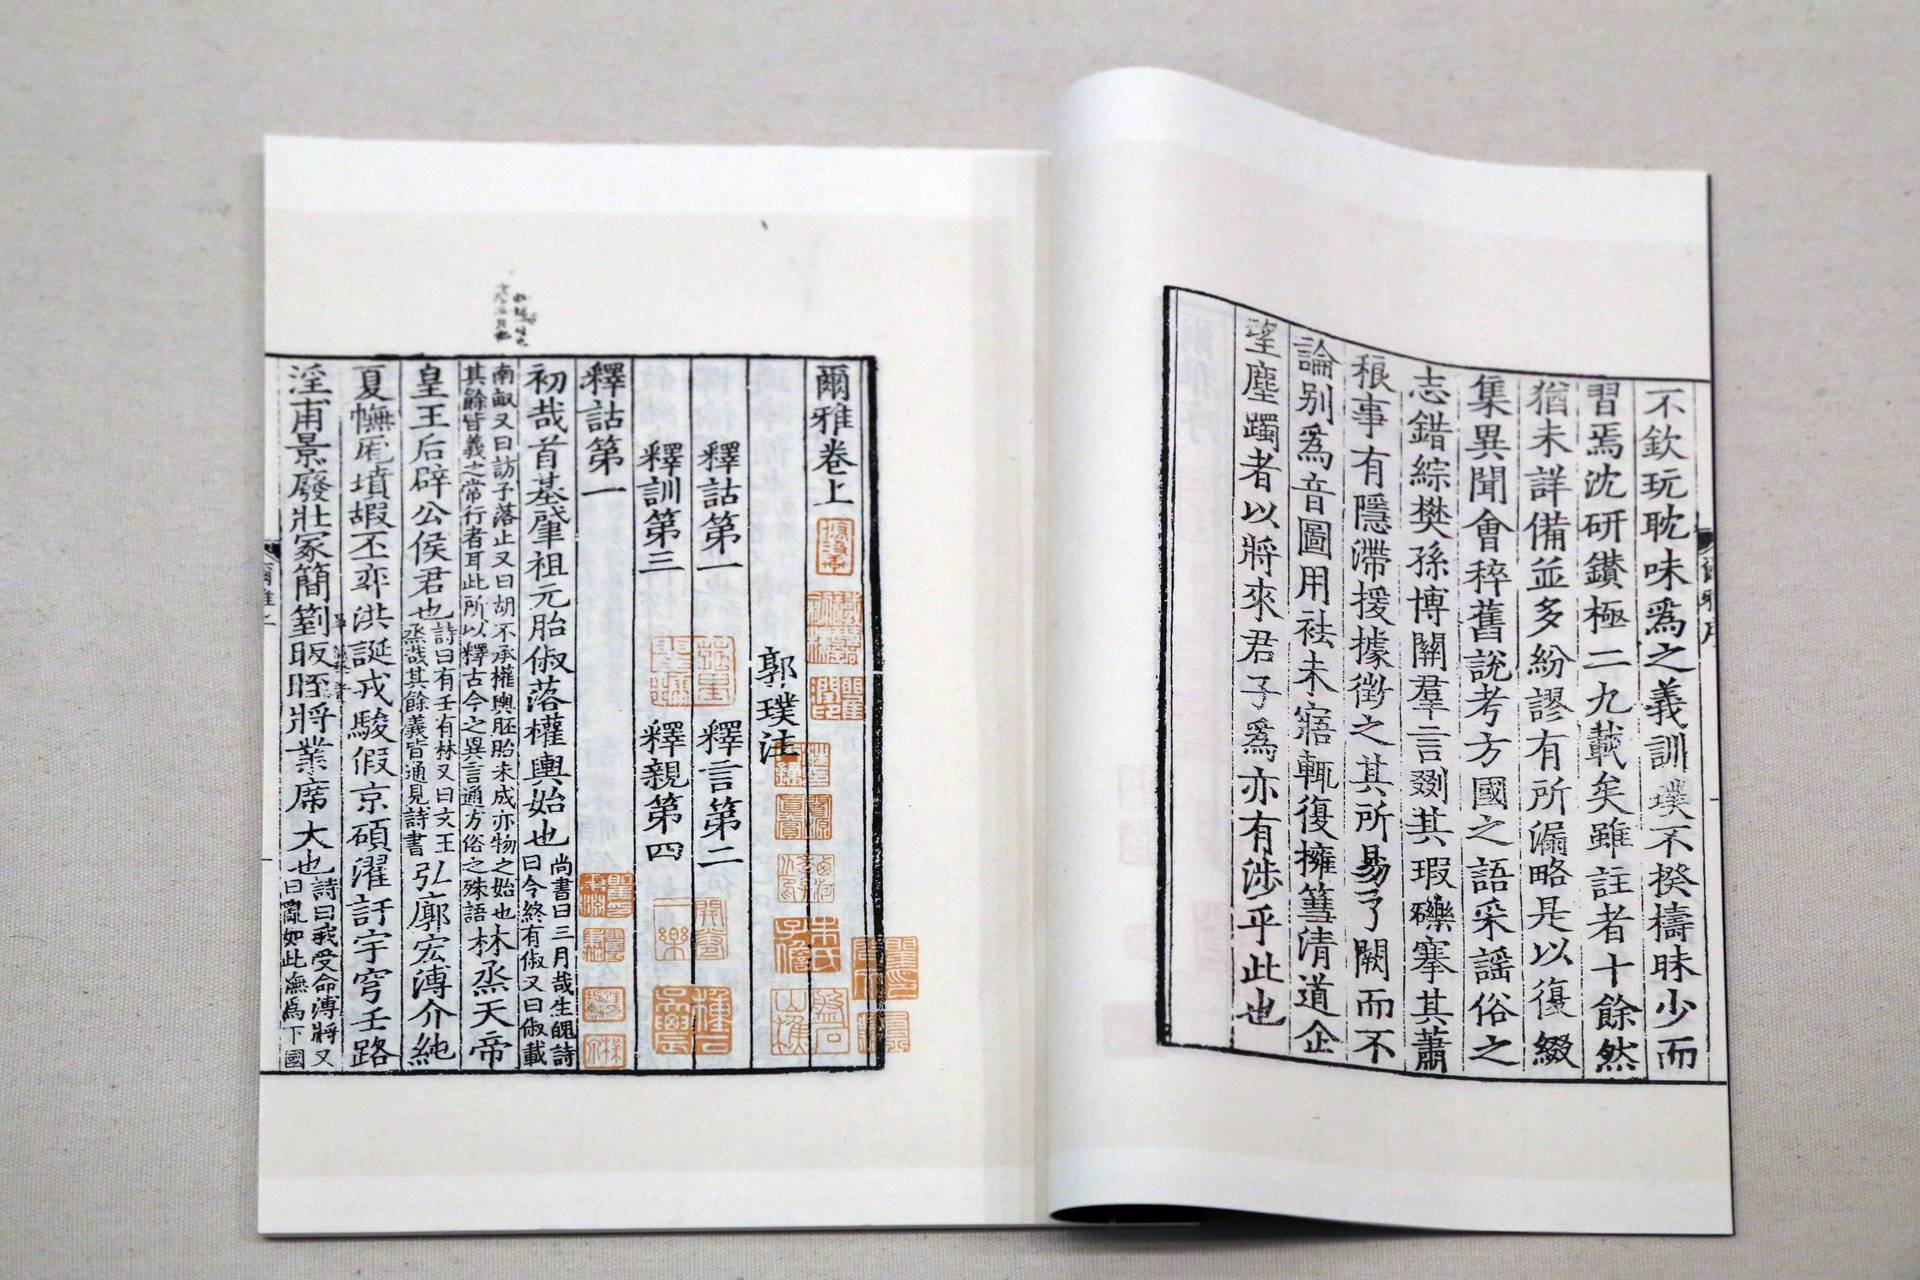 不欽玩耽味為之義訓璞不揆檮昧少而
習焉沈研鑽極二九載矣雖註者十餘然
猶未詳備並多紛謬有所漏略是以復綴
集異聞會稡舊說考方國之語采謠俗之
志錯綜樊孫博關羣言剟其瑕礫搴其蕭
稂事有隱滯援據徵之其所易了闕而不
論別為音圖用祛未寤輒復擁篲清道企
望塵躅者以將來君子為亦有涉乎此也
爾雅卷上
郭璞注
釋詁第一 釋言第二
釋訓第三 釋親第四
釋詁第一
初哉首基肇祖元胎俶落權輿始也
尚書曰三月哉生魄詩
曰令終有俶又曰俶載
南畝又曰訪予落止又曰胡不承權輿胚胎未成亦物之始也
其餘皆義之常行者耳此所以釋古今之異言通方俗之殊語
林烝天帝
皇王后辟公侯君也
詩曰有壬有林又曰文王
烝哉其餘義皆通見詩書
弘廓宏溥介純
夏幠厖墳嘏丕弈洪誕戎駿假京碩濯訏宇穹壬路
淫甫景廢壯冢簡箌昄晊將業席大也
詩曰我受命溥將又
曰亂如此幠為下國